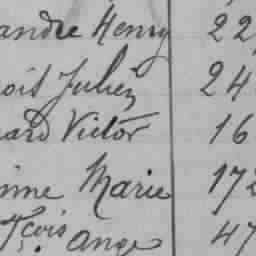 andre Henry 22
oit Julien 24
ard Victor 16
inne Marie 172
çois Ange 47